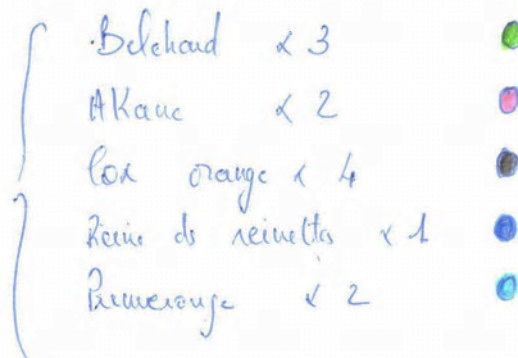 Belchard x 3
AKane x 2
Cox orange x 4
Reine ds reinettes x 1
Primerouge x 2